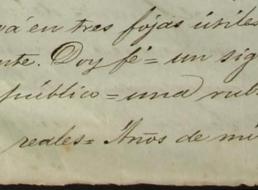 vá en tres fojas útiles
nte. Doy fé = un sig
público = una rub
reales = Años de mi